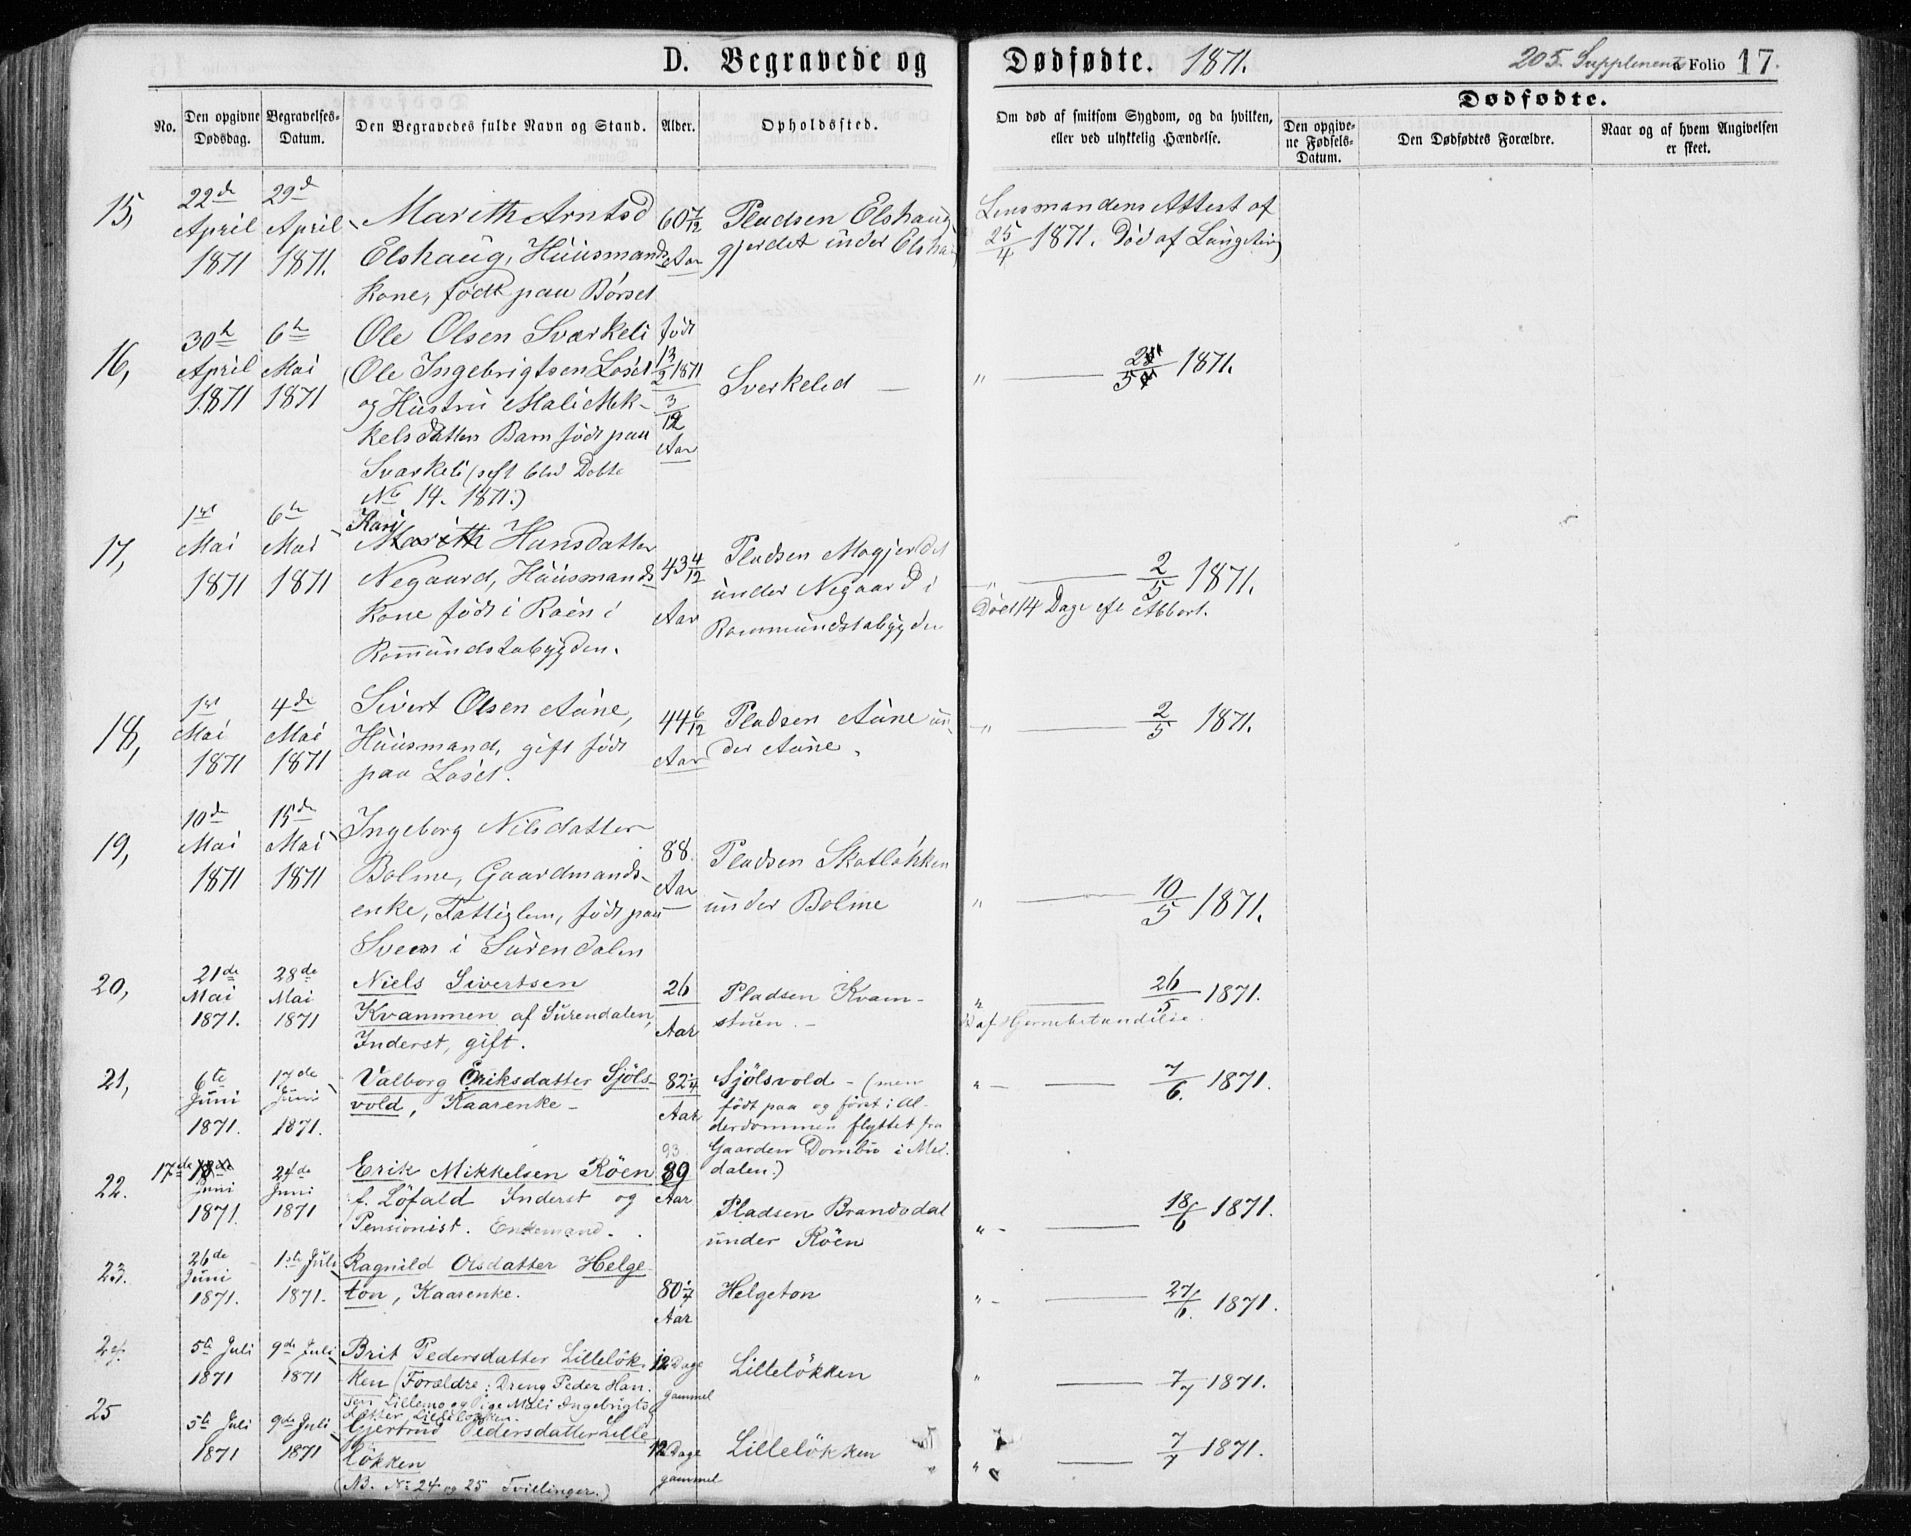 D. Begravede og Dødfødte. 1871. 205. Supplement a Folio 17.
No.
Den opgivne Dødsdag.
Begravelses-Datum.
Den Begravedes fulde Navn og Stand.
Alder.
Opholdssted.
Om død af smitsom Sygdom, og da hvilken,
eller ved ulykkelig Hændelse.
Dødfødte.
Den opgivne Fødsels-Datum.
Den Dødfødtes Forældre.
Naar og af hvem Angivelsen
er skeet.
15, 22de April 1871 29d April 1871.
Marith Arntsd
Elshaug, Huusmands
Kone, født paa Børset
60 7/12 Aar
Pladsen Elshaug
gjerdet under
Lensmandens Attest af
25/4 1871. Død af
16, 30te April 1871 6te Mai 1871
Ole Olsen Svarkeli
(Ole Ingebrigtsen Loset
og Hustru Mali Mik-
kelsdatters Barn født paa
Svarkeli ( Døbte
No 14. 1871.)
født 13/2 1871 3/12 Aar
Sverkeled —
" — 2/5 1871.
17, 1st Mai 1871 6te Mai 1871
Kari
Marith Hansdatter
Negaard, Huusmands
Kone født i Roen i
Romundstabygden.
43 4/12 Aar
Pladsen Mogjerdet
under Negaard i
Rommundstabygden
" — 2/5 1871.
Død 14 Dage eft Abbort.
18, 1st Mai 1871 4de Mai 1871
Sivert Olsen Aune,
Huusmand, gift født
paa Loset.
44 6/12 Aar
Pladsen Aune un-
der Aune.
" — 2/5 1871.
19, 10de Mai 1871 15de Mai 1871
Ingeborg Nilsdatter
Bolme, Gaardmands-
enke, Fattiglem, født paa
Sveen i Surendalen
88. Aar
Pladsen Skotløkken
under Bolme
" — 10/5 1871.
20, 21de Mai 1871. 28de Mai 1871
Niels Sivertsen
Kvammen af Surendalen,
Inderst, gift.
26 Aar
Pladsen Kvam-
stuen. —
" — 26/5 1871.
D af Hjernebetændelse.
21, 6te Juni 1871. 17de Juni 1871.
Valborg Eriksdatter Sjöls-
vold, Kaarenke —
82 1/4 Aar
Sjölsvold — (men
født paa og först i Al-
derdommen flyttet fra
Gaarden Dombu i Mel-
dalen.)
" — 7/6. 1871.
22. 17de Juni 1871. 24de Juni 1871
Erik Mikkelsen Röen
f. Löfald Inderst og
Pensionist. Enkemand.
93
89 Aar
Pladsen Brandsdal
under Röen
" — 18/6 1871.
23. 26de Juni 1871. 1ste Juli 1871.
Ragnild Olsdatter Helge-
ton, Kaarenke.
80 1/4 Aar
Helgeton
" — 27/6. 1871.
24. 5te Juli 1871 9de Juli 1871
Brit Pedersdatter Lillelök-
ken (Forældre: Dreng Peder Han-
sen Lillemo og Pige Mali Ingebrigts
datter Lillelökken.
12 Dage gammel
Lillelökken
" — 7/7 1871.
25 5te Juli 1871 9de Juli 1871
Gjertrud Pedersdatter Lille
lökken
(NB. No 24 og 25 Tvillinger.)
12 Dage gammel
Lillelökken
" — 7/7 1871.